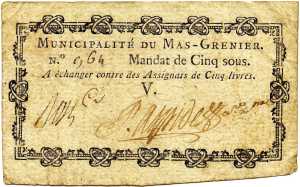 MUNICIPALITÉ DU MAS-GRENIER.
N.º 0,64 Mandat de Cinq sous.
A échanger contre des Assignats de Cinq livres.
V.